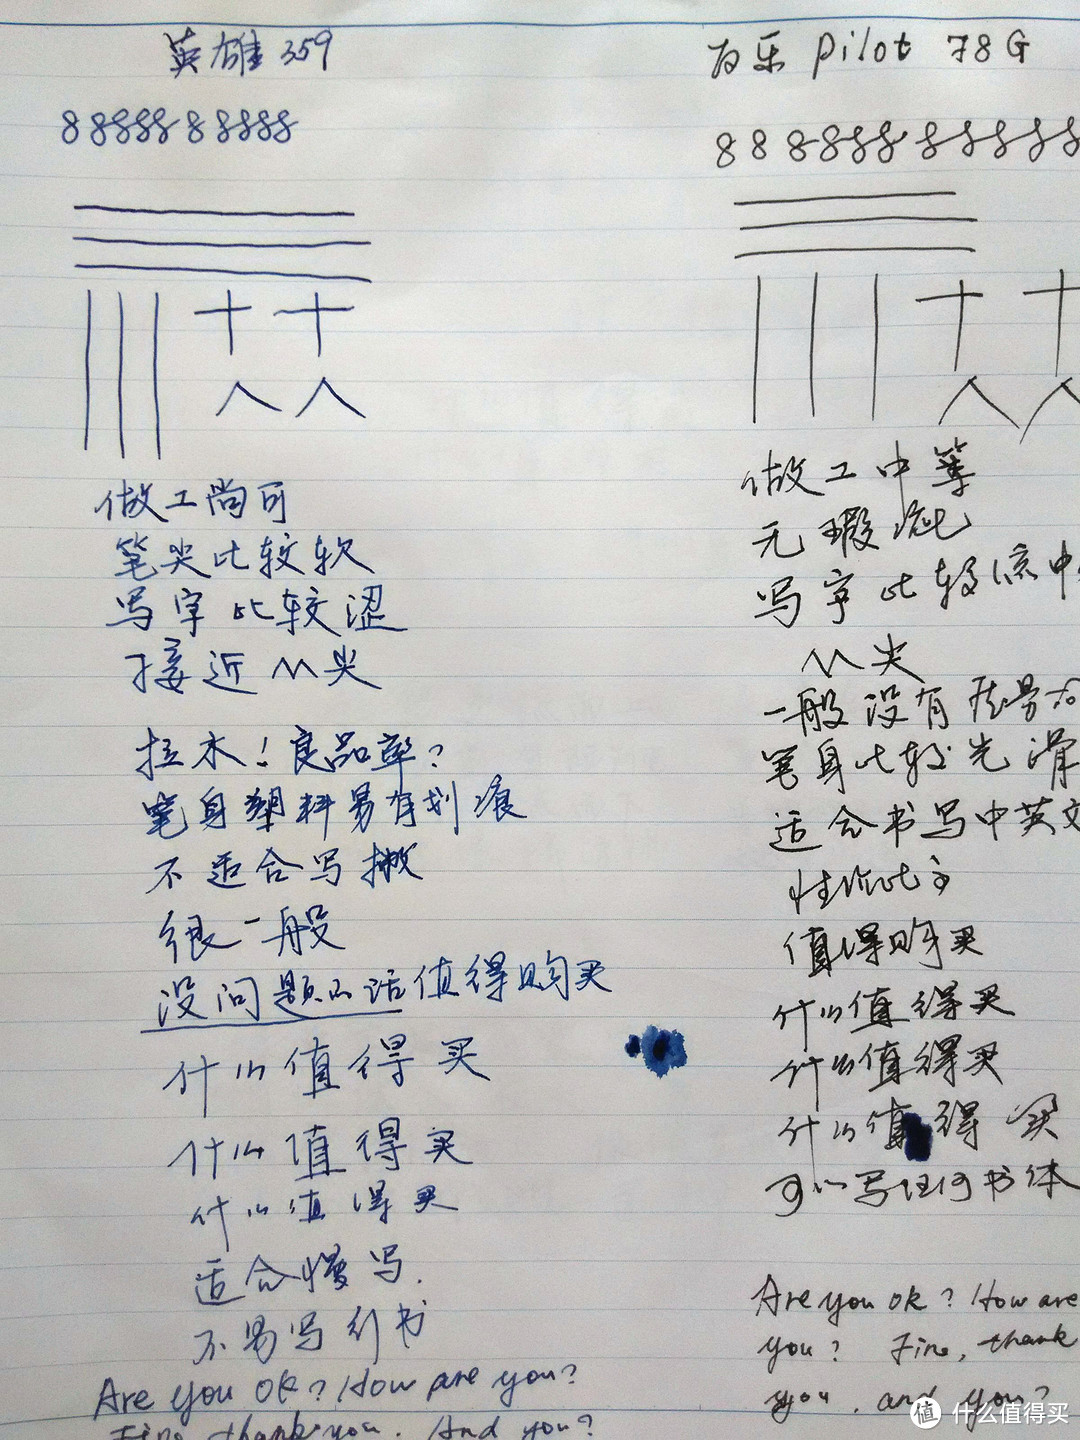 英雄359
8 8 8 8 8 8 8 8 8 8 8
十 十
人 人
做工尚可
笔尖比较软
写字比较涩
接近M尖
拉木！良品率？
笔身塑料易有划痕
不适合写撇
很一般
没问题的话值得购买
什么值得买
什么值得买
什么值得买
适合慢写.
不易写行书
Are you ok? How are you?
Fine thank you. And you?
百乐 Pilot 78G
8 8 8 8 8 8 8 8 8 8 8 8
十 十
人 人
做工中等
无瑕疵
写字比较流
M尖
一般没有
笔身比较光滑
适合书写中英文
性价比高
值得购买
什么值得买
什么值得买
什么值得买
可以写任何书体
Are you ok? How are
you? Fine, thank
you. and you?
值 什么值得买